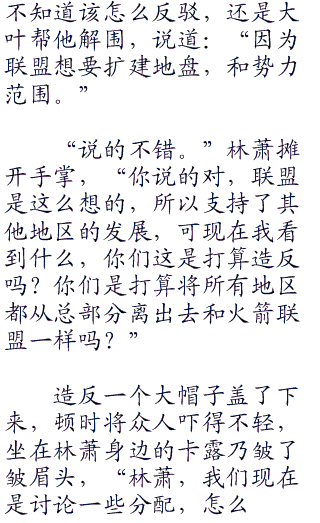 不知道该怎么反驳，还是大
叶帮他解围，说道：“因为
联盟想要扩建地盘，和势力
范围。”
“说的不错。”林萧摊
开手掌，“你说的对，联盟
是这么想的，所以支持了其
他地区的发展，可现在我看
到什么，你们这是打算造反
吗？你们是打算将所有地区
都从总部分离出去和火箭联
盟一样吗？”
造反一个大帽子盖了下
来，顿时将众人吓得不轻，
坐在林萧身边的卡露乃皱了
皱眉头，“林萧，我们现在
是讨论一些分配，怎么